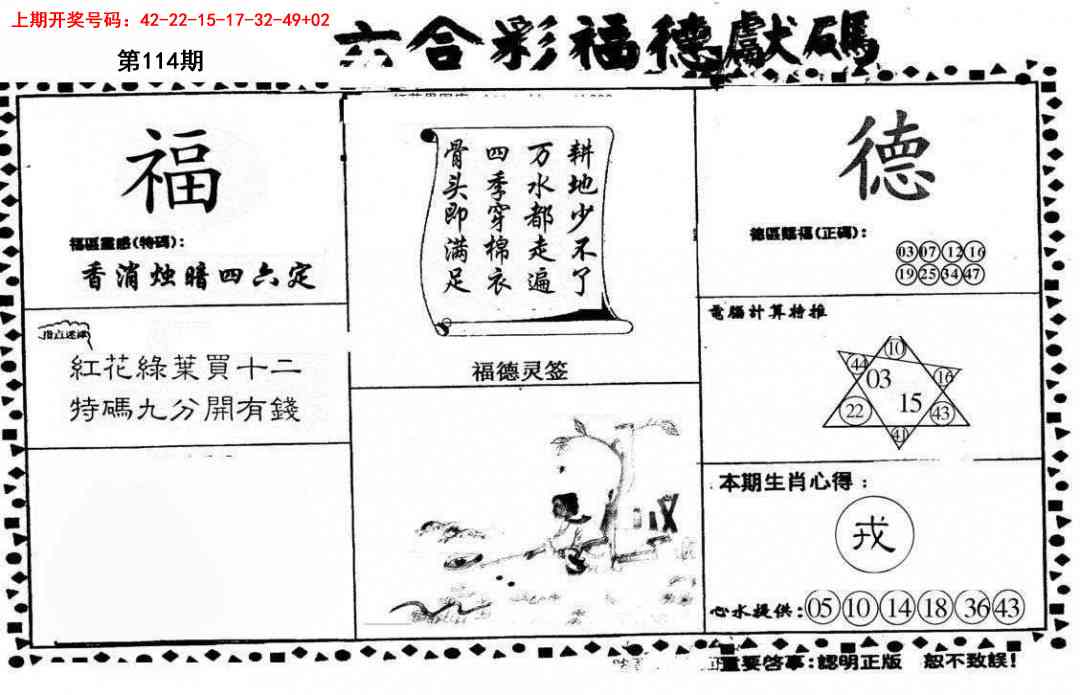 上期开奖号码：42-22-15-17-32-49+02
第114期
六合彩福德獻碼
福
福區靈感(特碼)：
香消烛暗四六定
指点迷津
紅花綠葉買十二
特碼九分開有錢
耕地少不了
万水都走遍
四季穿棉衣
骨头即满足
福德灵签
德
德區賜福(正碼)：
03 07 12 16
19 25 34 47
電腦計算特推
10
44 03 16
22 15 43
41
本期生肖心得：
戎
心水提供：05 10 14 18 36 43
重要啓事：認明正版 恕不致誤！